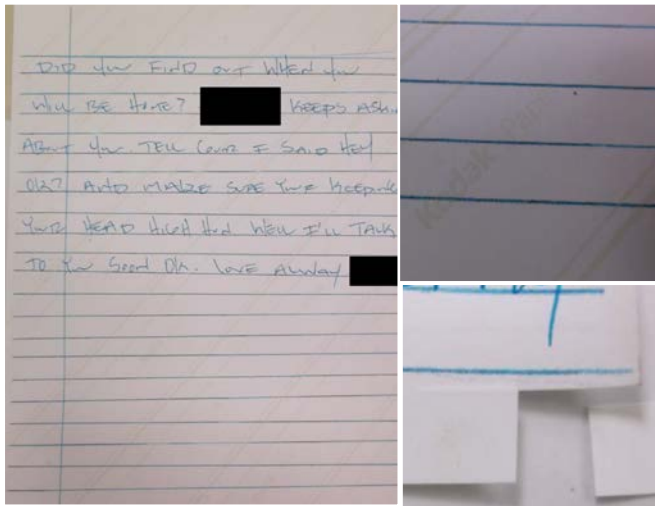 DID You FIND OUT WHEN You
Will BE HOME? KEEPS ASK..
ABOUT You. TELL I SAID HEY
OK? AND MAKE SURE YOUR KEEPING
YOUR HEAD HIGH WELL I'LL TALK
TO You SOON OK. LOVE ALWAY
Kodak